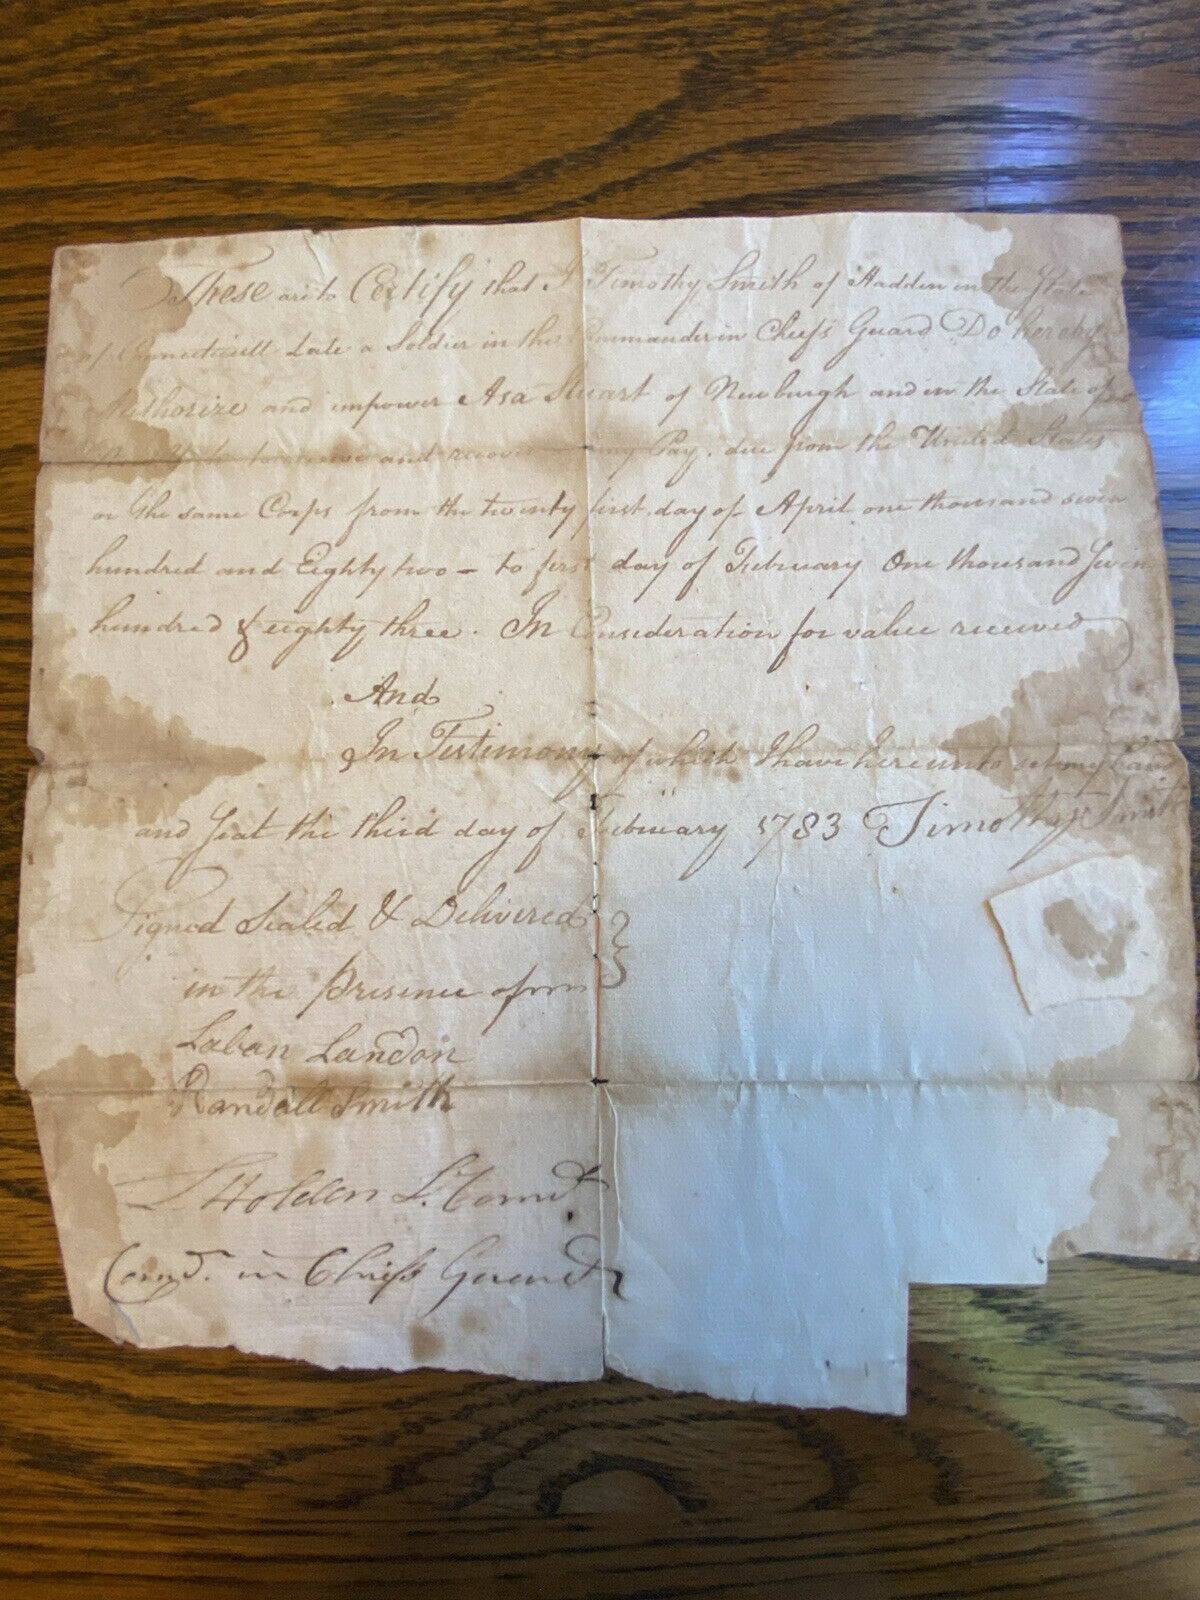 These are to Certify that I Timothy Smith of Haddem in the State
of Connecticutt Late a Soldier in the Commander in Cheifs Guard Do hereby
Authorize and impower Asa Stuart of Newburgh and in the State of
to receive and recover my Pay, due from the United States
in the same Corps from the twenty first day of April one thousand seven
hundred and Eighty two - to first day of February One thousand Seven
hundred & eighty three. In Consideration for value received
And
In Testimony of which I have hereunto set my hand
and Seal the third day of February 1783 Timothy Smith
Signed Sealed & Delivered
in the Presence of
Laban Landon
Randall Smith
Holden Lt. Comdt
Comdr. in Chiefs Guard